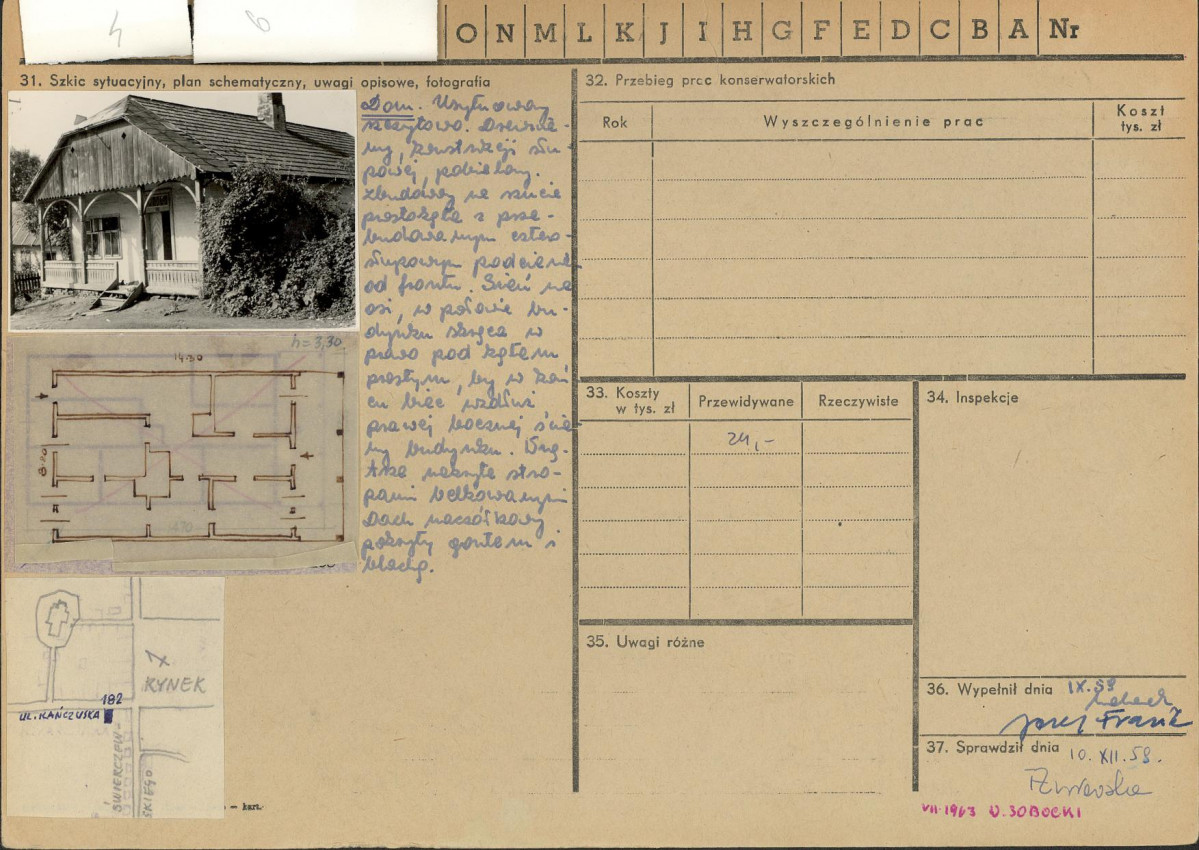 4 6
O N M L K J I H G F E D C B A Nr
31. Szkic sytuacyjny, plan schematyczny, uwagi opisowe, fotografia
Dom. Usytuowany
szczytowo. Drewnia-
ny, konstrukcji słu-
powej, pobielony.
Zbudowany na rzucie
prostokąta z prze-
budowanym cztero-
słupowym podcieniem
od frontu. Sień na
osi, w połowie bu-
dynku skręca w
prawo pod kątem
prostym, by w koń
cu biec wzdłuż
prawej bocznej ścia
ny budynku. Wnę-
trza nakryte stro-
pami belkowanymi
Dach naczółkowy
pokryty gontem i
blachą.
h=3,30
14.30
8.00
RYNEK
182
UL. KAŃCZUSKA
ŚWIERCZEW-
SKIEGO
– kart.
32. Przebieg prac konserwatorskich
Rok
Wyszczególnienie prac
Koszt
tys. zł
33. Koszty
w tys. zł
Przewidywane
Rzeczywiste
24,-
34. Inspekcje
35. Uwagi różne
36. Wypełnił dnia IX.59
Józef Frazik
37. Sprawdził dnia 10.XII.59.
VII-1963 W. SOBOCKI